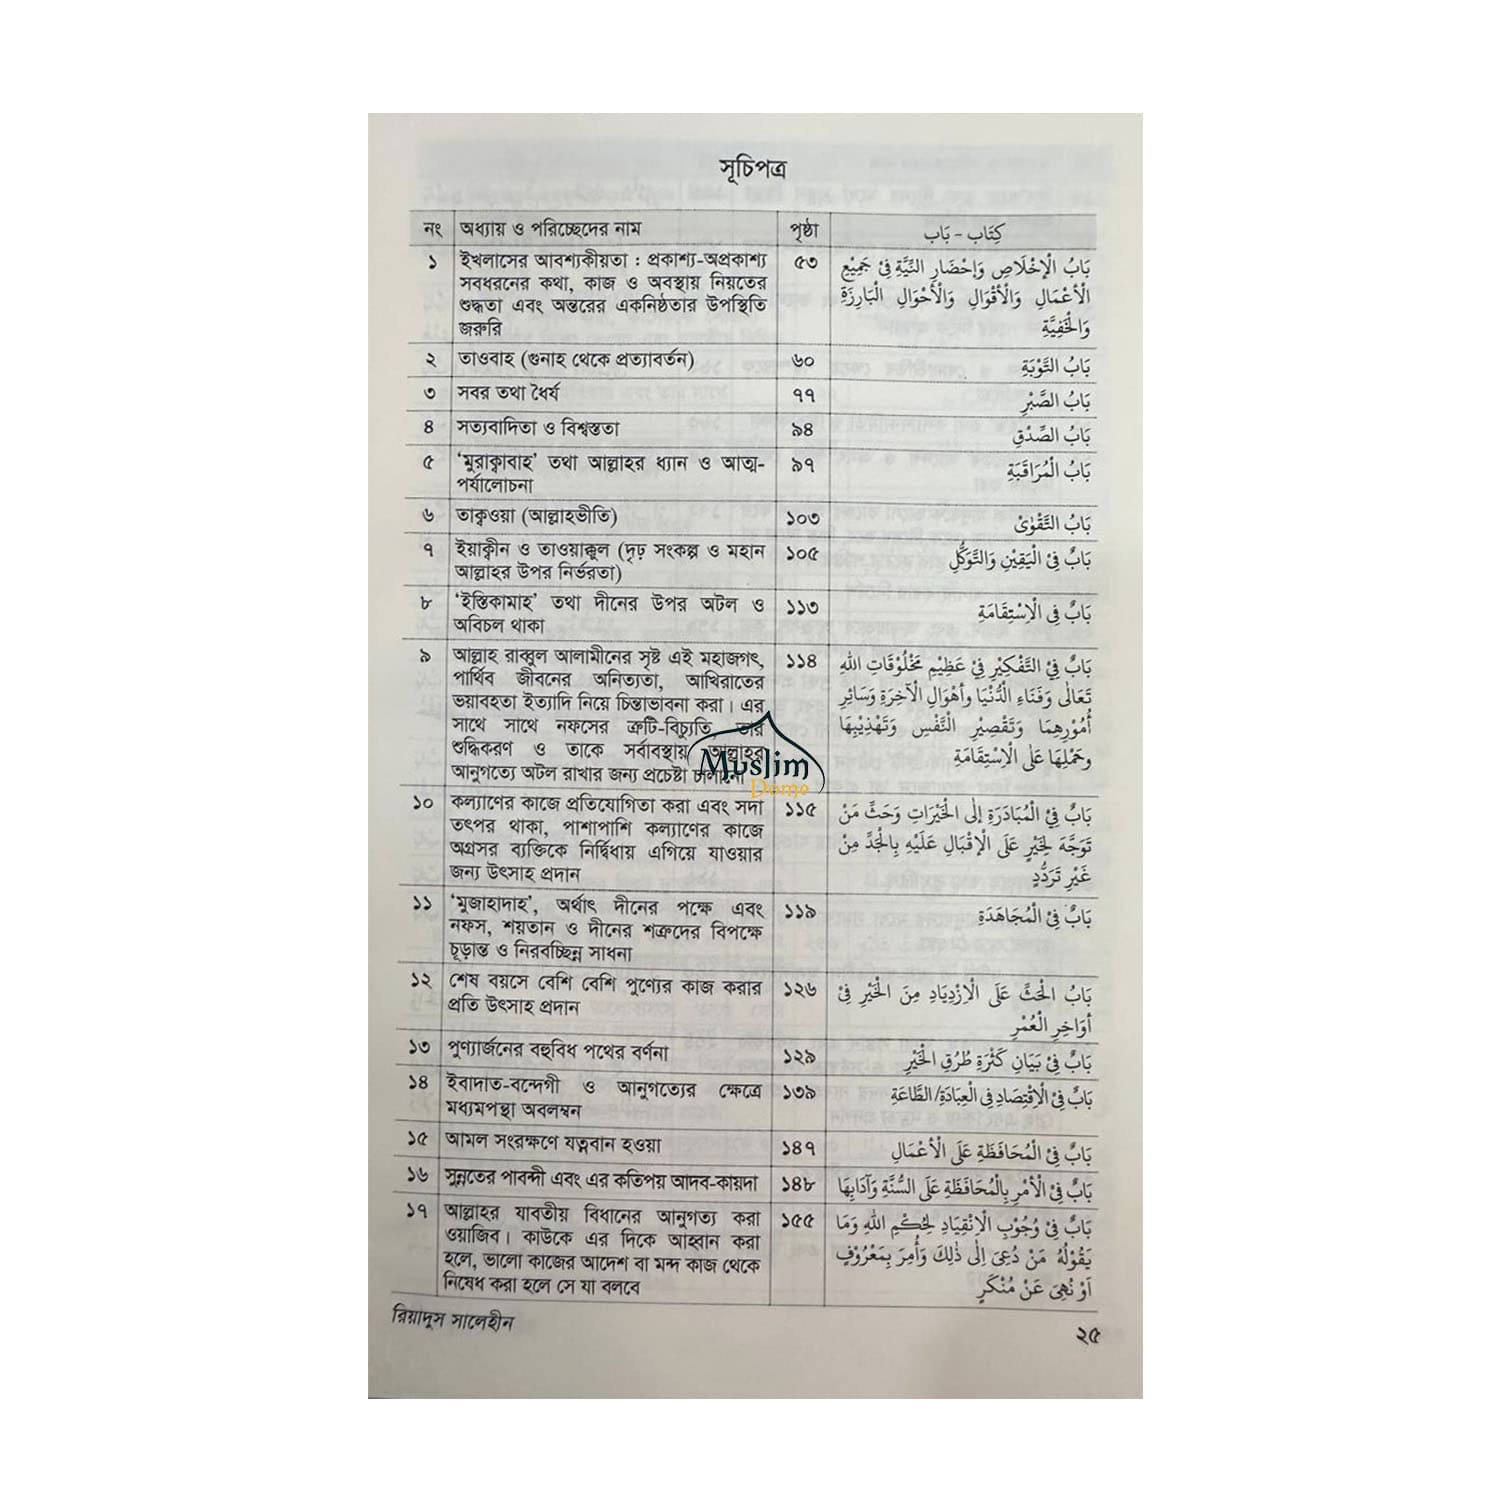 সূচিপত্র
নং অধ্যায় ও পরিচ্ছেদের নাম পৃষ্ঠা كِتَاب - بَاب
১ ইখলাসের আবশ্যকীয়তা : প্রকাশ্য-অপ্রকাশ্য ৫৩ بَابُ الْإِخْلَاصِ وَإِحْضَارِ النِّيَّةِ فِيْ جَمِيْعِ
সবধরনের কথা, কাজ ও অবস্থায় নিয়তের الْأَعْمَالِ وَالْأَقْوَالِ وَالْأَحْوَالِ الْبَارِزَةِ
শুদ্ধতা এবং অন্তরের একনিষ্ঠতার উপস্থিতি وَالْخَفِيَّةِ
জরুরি
২ তাওবাহ (গুনাহ থেকে প্রত্যাবর্তন) ৬০ بَابُ التَّوْبَةِ
৩ সবর তথা ধৈর্য ৭৭ بَابُ الصَّبْرِ
৪ সত্যবাদিতা ও বিশ্বস্ততা ৯৪ بَابُ الصِّدْقِ
৫ ‘মুরাক্বাবাহ’ তথা আল্লাহর ধ্যান ও আত্ম- ৯৭ بَابُ الْمُرَاقَبَةِ
পর্যালোচনা
৬ তাক্বওয়া (আল্লাহভীতি) ১০৩ بَابُ التَّقْوٰىْ
৭ ইয়াক্বীন ও তাওয়াক্কুল (দৃঢ় সংকল্প ও মহান ১০৫ بَابٌ فِيْ الْيَقِيْنِ وَالتَّوَكُّلِ
আল্লাহর উপর নির্ভরতা)
৮ ‘ইস্তিকামাহ’ তথা দীনের উপর অটল ও ১১৩ بَابٌ فِي الْاِسْتِقَامَةِ
অবিচল থাকা
৯ আল্লাহ রাব্বুল আলামীনের সৃষ্ট এই মহাজগৎ, ১১৪ بَابٌ فِيْ التَّفْكِيْرِ فِيْ عَظِيْمِ مَخْلُوْقَاتِ اللهِ
পার্থিব জীবনের অনিত্যতা, আখিরাতের تَعَالٰى وَفَنَاءِ الدُّنْيَا وأَهْوَالِ الْآخِرَةِ وَسَائِرِ
ভয়াবহতা ইত্যাদি নিয়ে চিন্তাভাবনা করা। এর أُمُوْرِهِمَا وَتَقْصِيْرِ النَّفْسِ وَتَهْذِيْبِهَا
সাথে সাথে নফসের ত্রুটি-বিচ্যুতি, তার وحَمْلِهَا عَلَى الْاِسْتِقَامَةِ
শুদ্ধিকরণ ও তাকে সর্বাবস্থায় আল্লাহর
আনুগত্যে অটল রাখার জন্য প্রচেষ্টা চালানো
Muslim
Dome
১০ কল্যাণের কাজে প্রতিযোগিতা করা এবং সদা ১১৫ بَابٌ فِيْ الْمُبَادَرَةِ إِلَى الْخَيْرَاتِ وَحَثِّ مَنْ
তৎপর থাকা, পাশাপাশি কল্যাণের কাজে تَوَجَّهَ لِخَيْرٍ عَلَى الْإِقْبَالِ عَلَيْهِ بِالْجَدِّ مِنْ
অগ্রসর ব্যক্তিকে নির্দ্বিধায় এগিয়ে যাওয়ার غَيْرِ تَرَدُّدٍ
জন্য উৎসাহ প্রদান
১১ ‘মুজাহাদাহ’, অর্থাৎ দীনের পক্ষে এবং ১১৯ بَابٌ فِيْ الْمُجَاهَدَةِ
নফস, শয়তান ও দীনের শত্রুদের বিপক্ষে
চূড়ান্ত ও নিরবচ্ছিন্ন সাধনা
১২ শেষ বয়সে বেশি বেশি পুণ্যের কাজ করার ১২৬ بَابُ الْحَثِّ عَلَى الْاِزْدِيَادِ مِنَ الْخَيْرِ فِيْ
প্রতি উৎসাহ প্রদান أَوَاخِرِ الْعُمْرِ
১৩ পুণ্যার্জনের বহুবিধ পথের বর্ণনা ১২৯ بَابٌ فِيْ بَيَانِ كَثْرَةِ طُرُقِ الْخَيْرِ
১৪ ইবাদাত-বন্দেগী ও আনুগত্যের ক্ষেত্রে ১৩৯ بَابٌ فِيْ الْاِقْتِصَادِ فِي الْعِبَادَةِ/الطَّاعَةِ
মধ্যমপন্থা অবলম্বন
১৫ আমল সংরক্ষণে যত্নবান হওয়া ১৪৭ بَابٌ فِيْ الْمُحَافَظَةِ عَلَى الْأَعْمَالِ
১৬ সুন্নতের পাবন্দী এবং এর কতিপয় আদব-কায়দা ১৪৮ بَابٌ فِيْ الْأَمْرِ بِالْمُحَافَظَةِ عَلَى السُّنَّةِ وَآدَابِهَا
১৭ আল্লাহর যাবতীয় বিধানের আনুগত্য করা ১৫৫ بَابٌ فِيْ وُجُوْبِ الْاِنْقِيَادِ لِحُكْمِ اللهِ وَمَا
ওয়াজিব। কাউকে এর দিকে আহ্বান করা يَقُوْلُهُ مَنْ دُعِيَ إِلٰى ذٰلِكَ وَأُمِرَ بِمَعْرُوْفٍ
হলে, ভালো কাজের আদেশ বা মন্দ কাজ থেকে أَوْ نُهِيَ عَنْ مُنْكَرٍ
নিষেধ করা হলে সে যা বলবে
রিয়াদুস সালেহীন ২৫